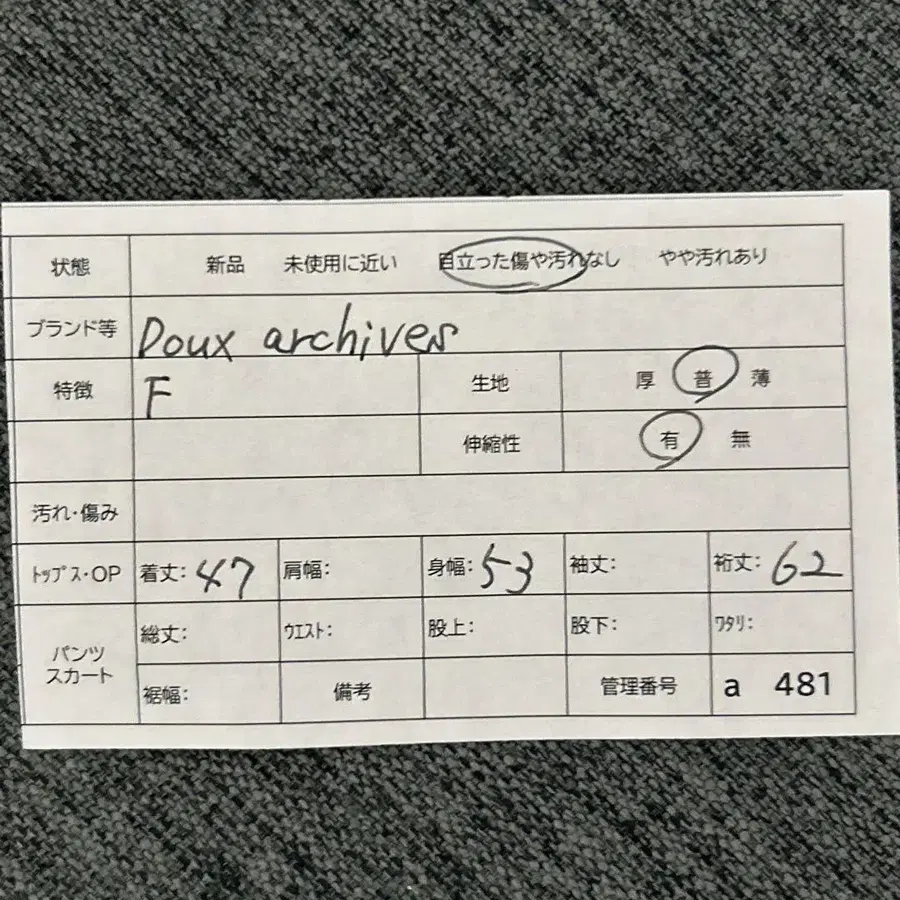 状態 新品 未使用に近い 目立った傷や汚れなし やや汚れあり
ブランド等 Doux archives
特徴 F 生地 厚 普 薄
伸縮性 有 無
汚れ・傷み
ﾄｯﾌﾟｽ・OP 着丈: 47 肩幅: 身幅: 53 袖丈: 裄丈: 62
パンツ
スカート
総丈: ｳｴｽﾄ: 股上: 股下: ﾜﾀﾘ:
裾幅: 備考 管理番号 a 481